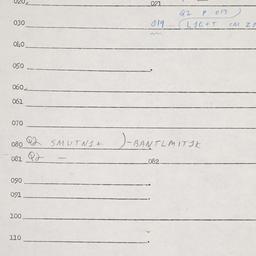 020
021
Q2 P 019 )
030
019 (LIGHT IN 2
040
050
060
061
070
080 Q2 SMUTNI+ )-BANTLMITJK
081 Q2 -
082
090
091
100
110